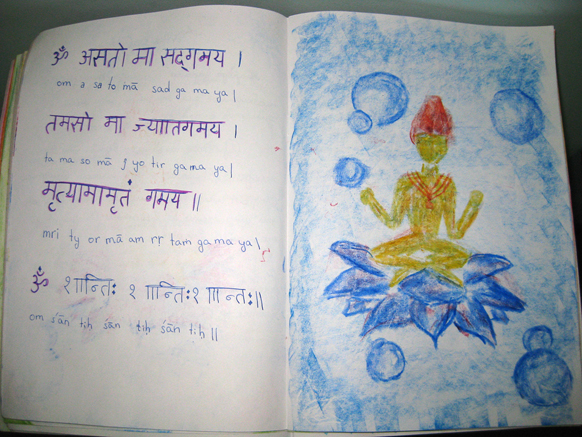 ॐ असतो मा सद्गमय ।
om a sa to mā sad ga ma ya |
तमसो मा ज्यातगमय ।
ta ma so mā j yo tir ga ma ya |
मृत्यामामृतं गमय ॥
mri ty or mā am rr tam ga ma ya |
ॐ शान्तिः शान्तिः शान्तः॥
om śān tih śān tih śān tih ||